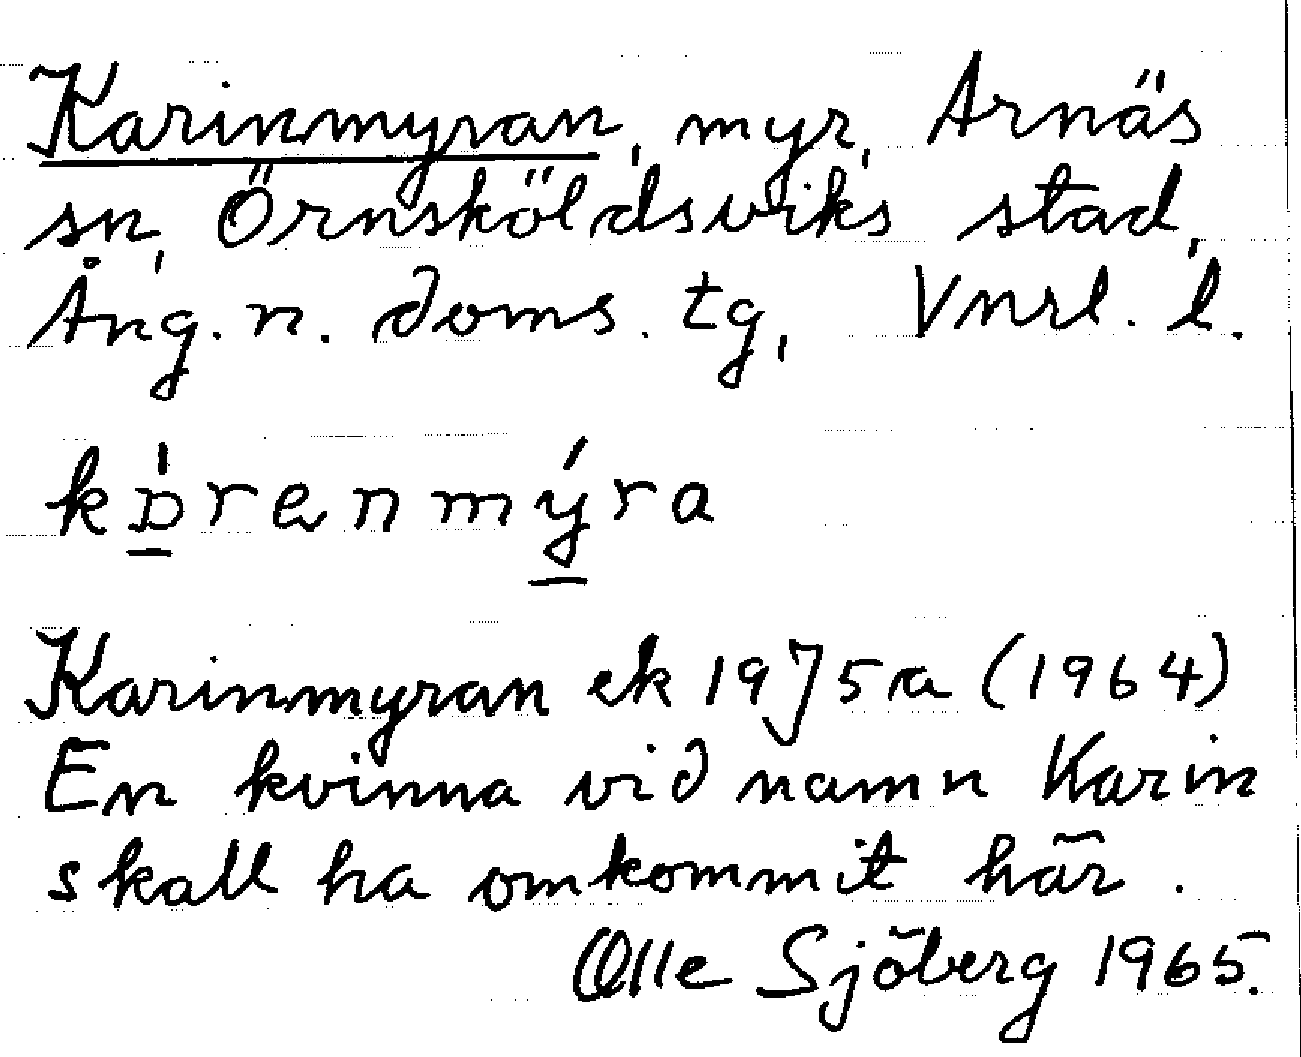 Karinmyran, myr, Arnäs
sn, Örnsköldsviks stad,
Ång. n. doms. tg, Vnrl. l.
Karinmyran ek 19J5a (1964)
En kvinna vid namn Karin
skall ha omkommit här.
Olle Sjöberg 1965.